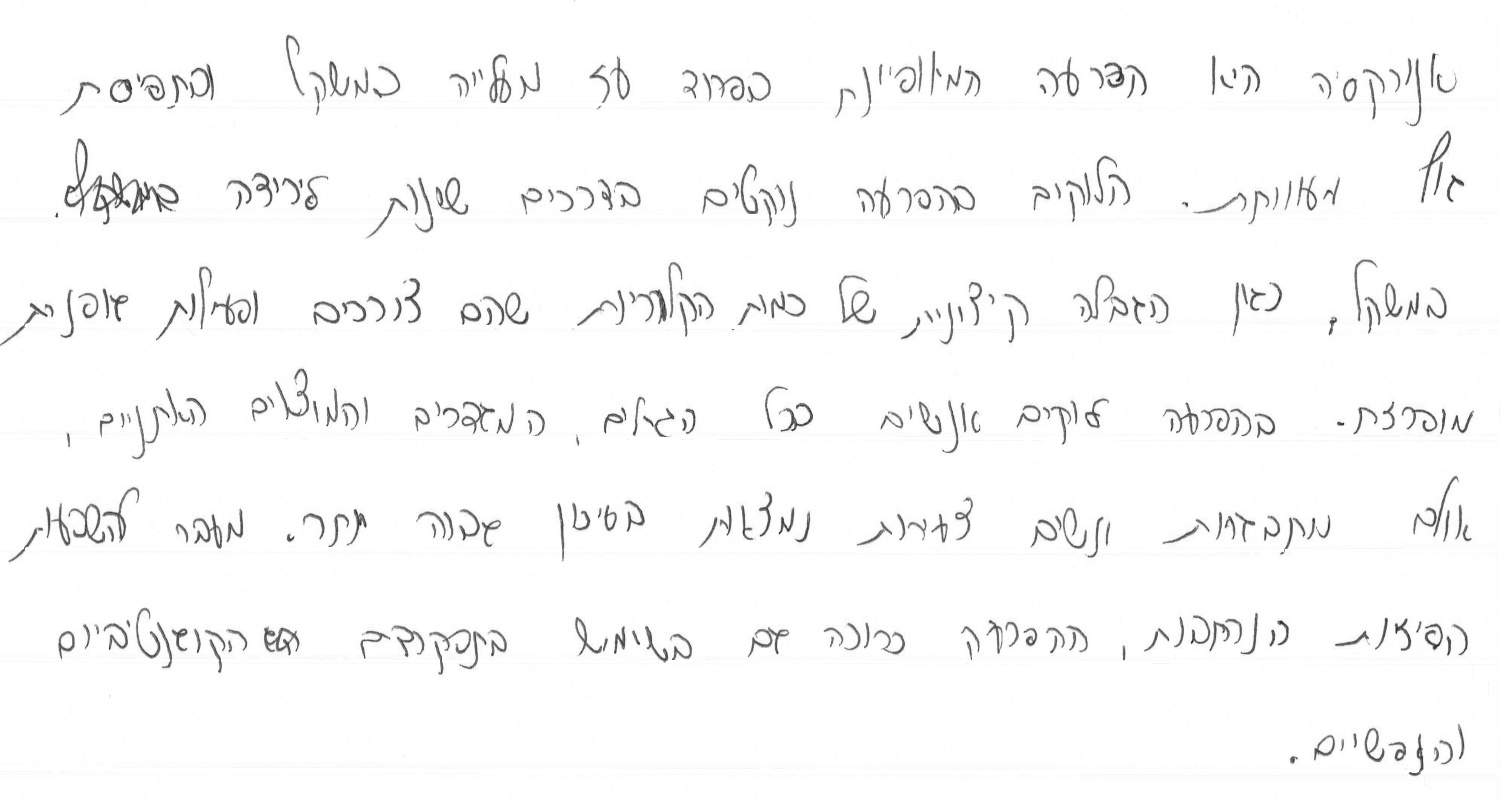 אנורקסיה היא הפרעה המאופיינת בפחד עז מעלייה במשקל ובתפיסת
גוף מעוותת. הלוקים בהפרעה נוקטים בדרכים שונות לירידה
במשקל, כגון הגבלה קיצונית של כמות הקלוריות שהם צורכים ופעילות גופנית
מופרזת. בהפרעה לוקים אנשים בכל הגילים, המגדרים והמוצאים האתניים,
אולם מתבגרות ונשים צעירות נמצאות בסיכון גבוה יותר. מעבר להשפעות
הפיזיות הנרחבות, ההפרעה כרוכה גם בשימוש בתפקודים הקוגנטיביים
והנפשיים.